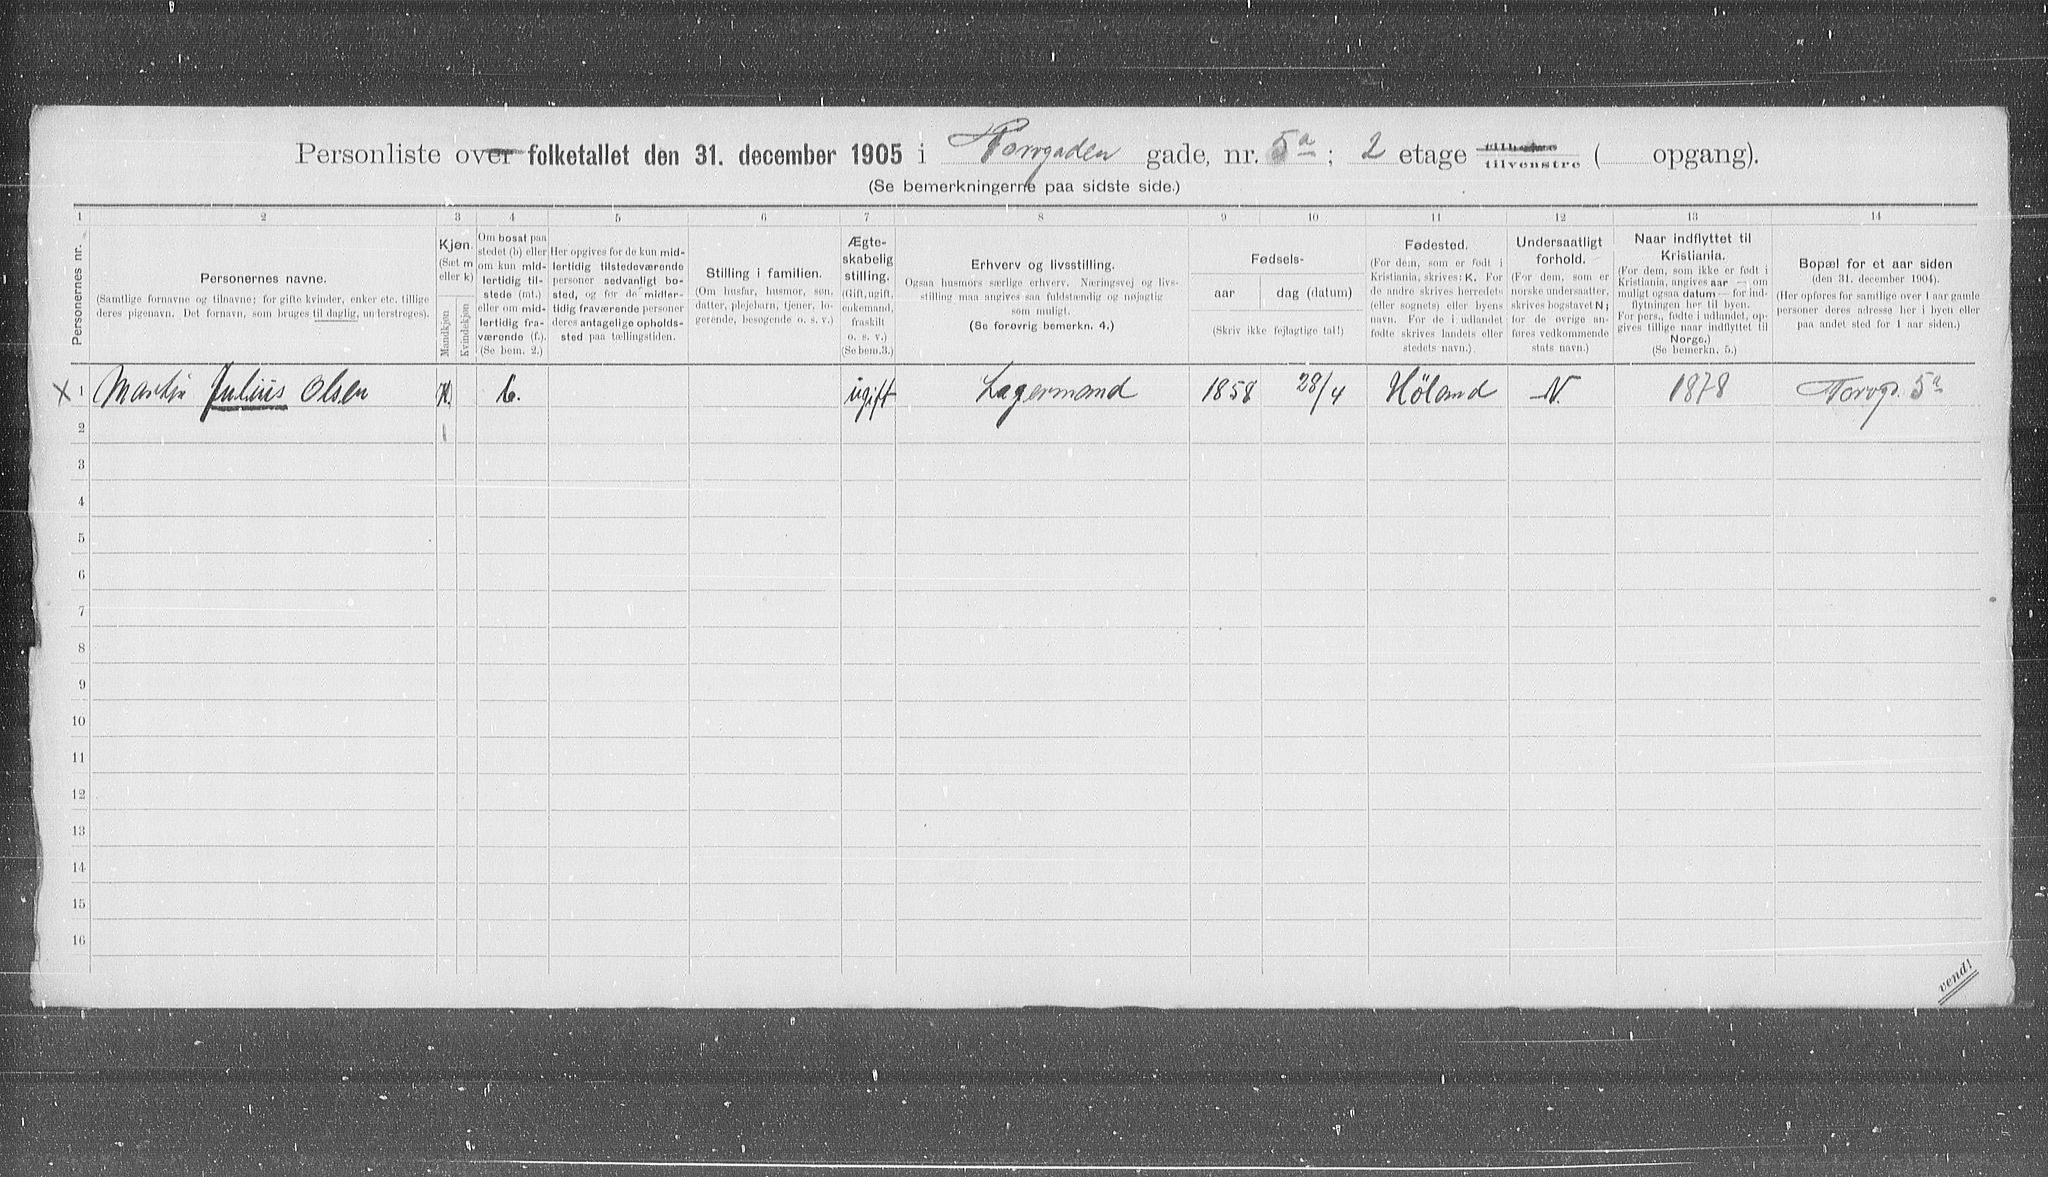 Personliste over folketallet den 31. december 1905 i Torvgaden gade, nr. 5a; 2 etage tilhøire tilvenstre ( opgang).
(Se bemerkningerne paa sidste side.)
1 2 3 4 5 6 7 8 9 10 11 12 13 14
Personernes nr.
Personernes navne.
(Samtlige fornavne og tilnavne; for gifte kvinder, enker etc. tillige
deres pigenavn. Det fornavn, som bruges til daglig, understreges).
Kjøn.
(Sæt m
eller k)
Mandkjøn
Kvindekjøn
Om bosat paa
stedet (b) eller
om kun mid-
lertidig til-
stede (mt.)
eller om mid-
lertidig fra-
værende (f.).
(Se bem. 2.)
Her opgives for de kun mid-
lertidig tilstedeværende
personer sedvanligt bo-
sted, og for de midler-
tidig fraværende personer
deres antagelige opholds-
sted paa tællingstiden.
Stilling i familien.
(Om husfar, husmor, søn,
datter, plejebarn, tjener, lo-
gerende, besøgende o. s. v.)
Ægte-
skabelig
stilling.
(Gift, ugift,
enkemand,
fraskilt
o. s. v.)
(Se bem. 3.)
Erhverv og livsstilling.
Ogsaa husmors særlige erhverv. Næringsvej og livs-
stilling maa angives saa fuldstændig og nøjagtig
som muligt.
(Se forøvrig bemerkn. 4.)
Fødsels-
aar
dag (datum)
(Skriv ikke fejlagtige tal!)
Fødested.
(For dem, som er født i
Kristiania, skrives: K. For
de andre skrives herredets
(eller sognets) eller byens
navn. For de i udlandet
fødte skrives landets eller
stedets navn.)
Undersaatligt
forhold.
(For dem, som er
norske undersaatter,
skrives bogstavet N;
for de øvrige an-
føres vedkommende
stats navn.)
Naar indflyttet til
Kristiania.
(For dem, som ikke er født i
Kristiania, angives aar — om
muligt ogsaa datum — for ind-
flytningen her til byen.
For pers., fødte i udlandet, op-
gives tillige naar indflyttet til
Norge.)
(Se bemerkn. 5.)
Bopæl for et aar siden
(den 31. december 1904).
(Her opføres for samtlige over 1 aar gamle
personer deres adresse her i byen eller
paa andet sted for 1 aar siden.)
X 1 Martin Julius Olsen b. ugift Lagermand 1858 28/4 Høland N. 1878 Torvgd. 5a
2
3
4
5
6
7
8
9
10
11
12
13
14
15
16
vend!